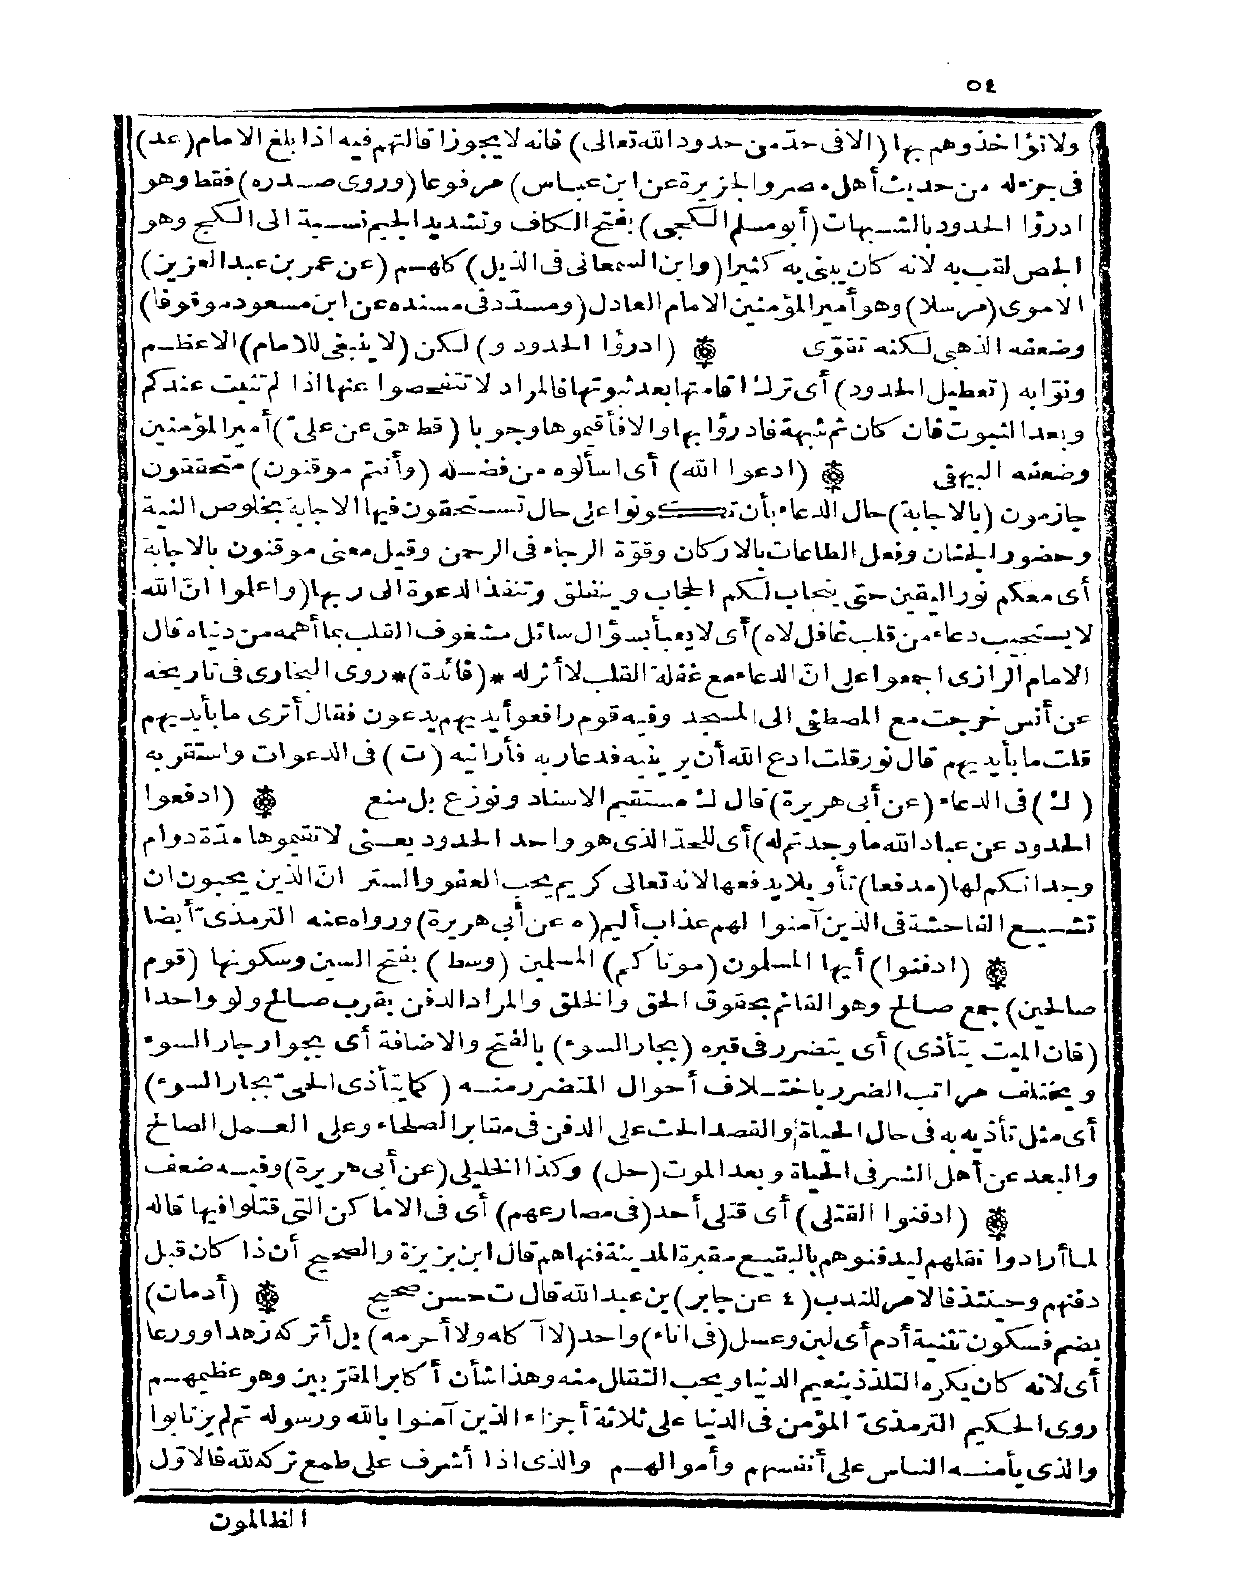 ٥٤
ولا تؤاخذوهم بها (الا فى حد من حدود الله تعالى) فانه لا يجوز اقالتهم فيه اذا بلغ الامام (عد)
فى جزء له من حديث أهل مصر والجزيرة عن ابن عباس) مرفوعا (وروى صدره) فقط وهو
ادرؤا الحدود بالشبهات (أبو مسلم الكجى) بفتح الكاف وتشديد الجيم نسبة الى الكج وهو
الجص لقب به لانه كان يبنى به كثيرا (وابن السمعانى فى الذيل) كلهم (عن عمر بن عبد العزيز)
الاموى (مرسلا) وهو أمير المؤمنين الامام العادل (ومسدد فى مسنده عن ابن مسعود موقوفا)
وضعفه الذهبى لكنه تقوّى ۞ (ادرؤا الحدود و) لكن (لا ينبغى للامام) الاعظم
ونوّابه (تعطيل الحدود) أى ترك اقامتها بعد ثبوتها فالمراد لا تتفحصوا عنها اذا لم تثبت عندكم
وبعد الثبوت فان كان ثم شبهة فادرؤا بها والا فأقيموها وجوبا (قط هق عن علىّ) أمير المؤمنين
وضعفه البيهقى ۞ (ادعوا الله) أى اسألوه من فضله (وأنتم موقنون) متحققون
جازمون (بالاجابة) حال الدعاء بأن تكونوا على حال تستحقون فيها الاجابة بخلوص النية
وحضور الجنان وفعل الطاعات بالاركان وقوّة الرجاء فى الرحمن وقيل معنى موقنون بالاجابة
أى معكم نور اليقين حتى ينجاب لكم الحجاب وينفلق وتنفذ الدعوة الى ربها (واعلموا انّ الله
لا يستجيب دعاء من قلب غافل لاه) أى لا يعبأ بسؤال سائل مشغوف القلب بما أهمه من دنياه قال
الامام الرازى اجمعوا على انّ الدعاء مع غفلة القلب لا أثر له *(فائدة)* روى البخارى فى تاريخه
عن أنس خرجت مع المصطفى الى المسجد وفيه قوم رافعو أيديهم يدعون فقال أترى ما بأيديهم
قلت ما بأيديهم قال نور قلت ادع الله أن يرينيه فدعا ربه فأرانيه (ت) فى الدعوات واستغربه
(ك) فى الدعاء (عن أبى هريرة) قال ك مستقيم الاسناد ونوزع بل منع ۞ (ادفعوا
الحدود عن عباد الله ما وجدتم له) أى للحدّ الذى هو واحد الحدود يعنى لا تقيموها مدّة دوام
وجدانكم لها (مدفعا) تأويلا يدفعها لانه تعالى كريم يحب العفو والستر انّ الذين يحبون ان
تشيع الفاحشة فى الذين آمنوا لهم عذاب أليم (ه عن أبى هريرة) ورواه عنه الترمذىّ أيضا
۞ (ادفنوا) أيها المسلمون (موتاكم) المسلمين (وسط) بفتح السين وسكونها (قوم
صالحين) جمع صالح وهو القائم بحقوق الحق والخلق والمراد الدفن بقرب صالح ولو واحدا
(فان الميت يتأذى) أى يتضرر فى قبره (بجار السوء) بالفتح والاضافة أى بجوار جار السوء
ويختلف مراتب الضرر باختلاف أحوال المتضرر منه (كما يتأذى الحىّ بجار السوء)
أى مثل تأذيه به فى حال الحياة والقصد الحث على الدفن فى مقابر الصلحاء وعلى العمل الصالح
والبعد عن أهل الشر فى الحياة وبعد الموت (حل) وكذا الخليلى (عن أبى هريرة) وفيه ضعف
۞ (ادفنوا القتلى) أى قتلى أحد (فى مصارعهم) أى فى الاماكن التى قتلوا فيها قاله
لما أرادوا نقلهم ليدفنوهم بالبقيع مقبرة المدينة فنهاهم قال ابن بزيزة والصحيح أن ذا كان قبل
دفنهم وحينئذ فالامر للندب (٤ عن جابر) بن عبد الله قال ت حسن صحيح ۞ (أدمان)
بضم فسكون تثنية أدم أى لبن وعسل (فى اناء) واحد (لا آكله ولا أحرمه) بل أتركه زهدا وورعا
أى لانه كان يكره التلذذ بنعيم الدنيا ويحب التقال منه وهذا شأن أكابر المقرّبين وهو عظيمهم
روى الحكيم الترمذىّ المؤمن فى الدنيا على ثلاثة أجزاء الذين آمنوا بالله ورسوله ثم لم يرتابوا
والذى يأمنه الناس على أنفسهم وأموالهم والذى اذا أشرف على طمع تركه لله فالاوّل
الظالمون